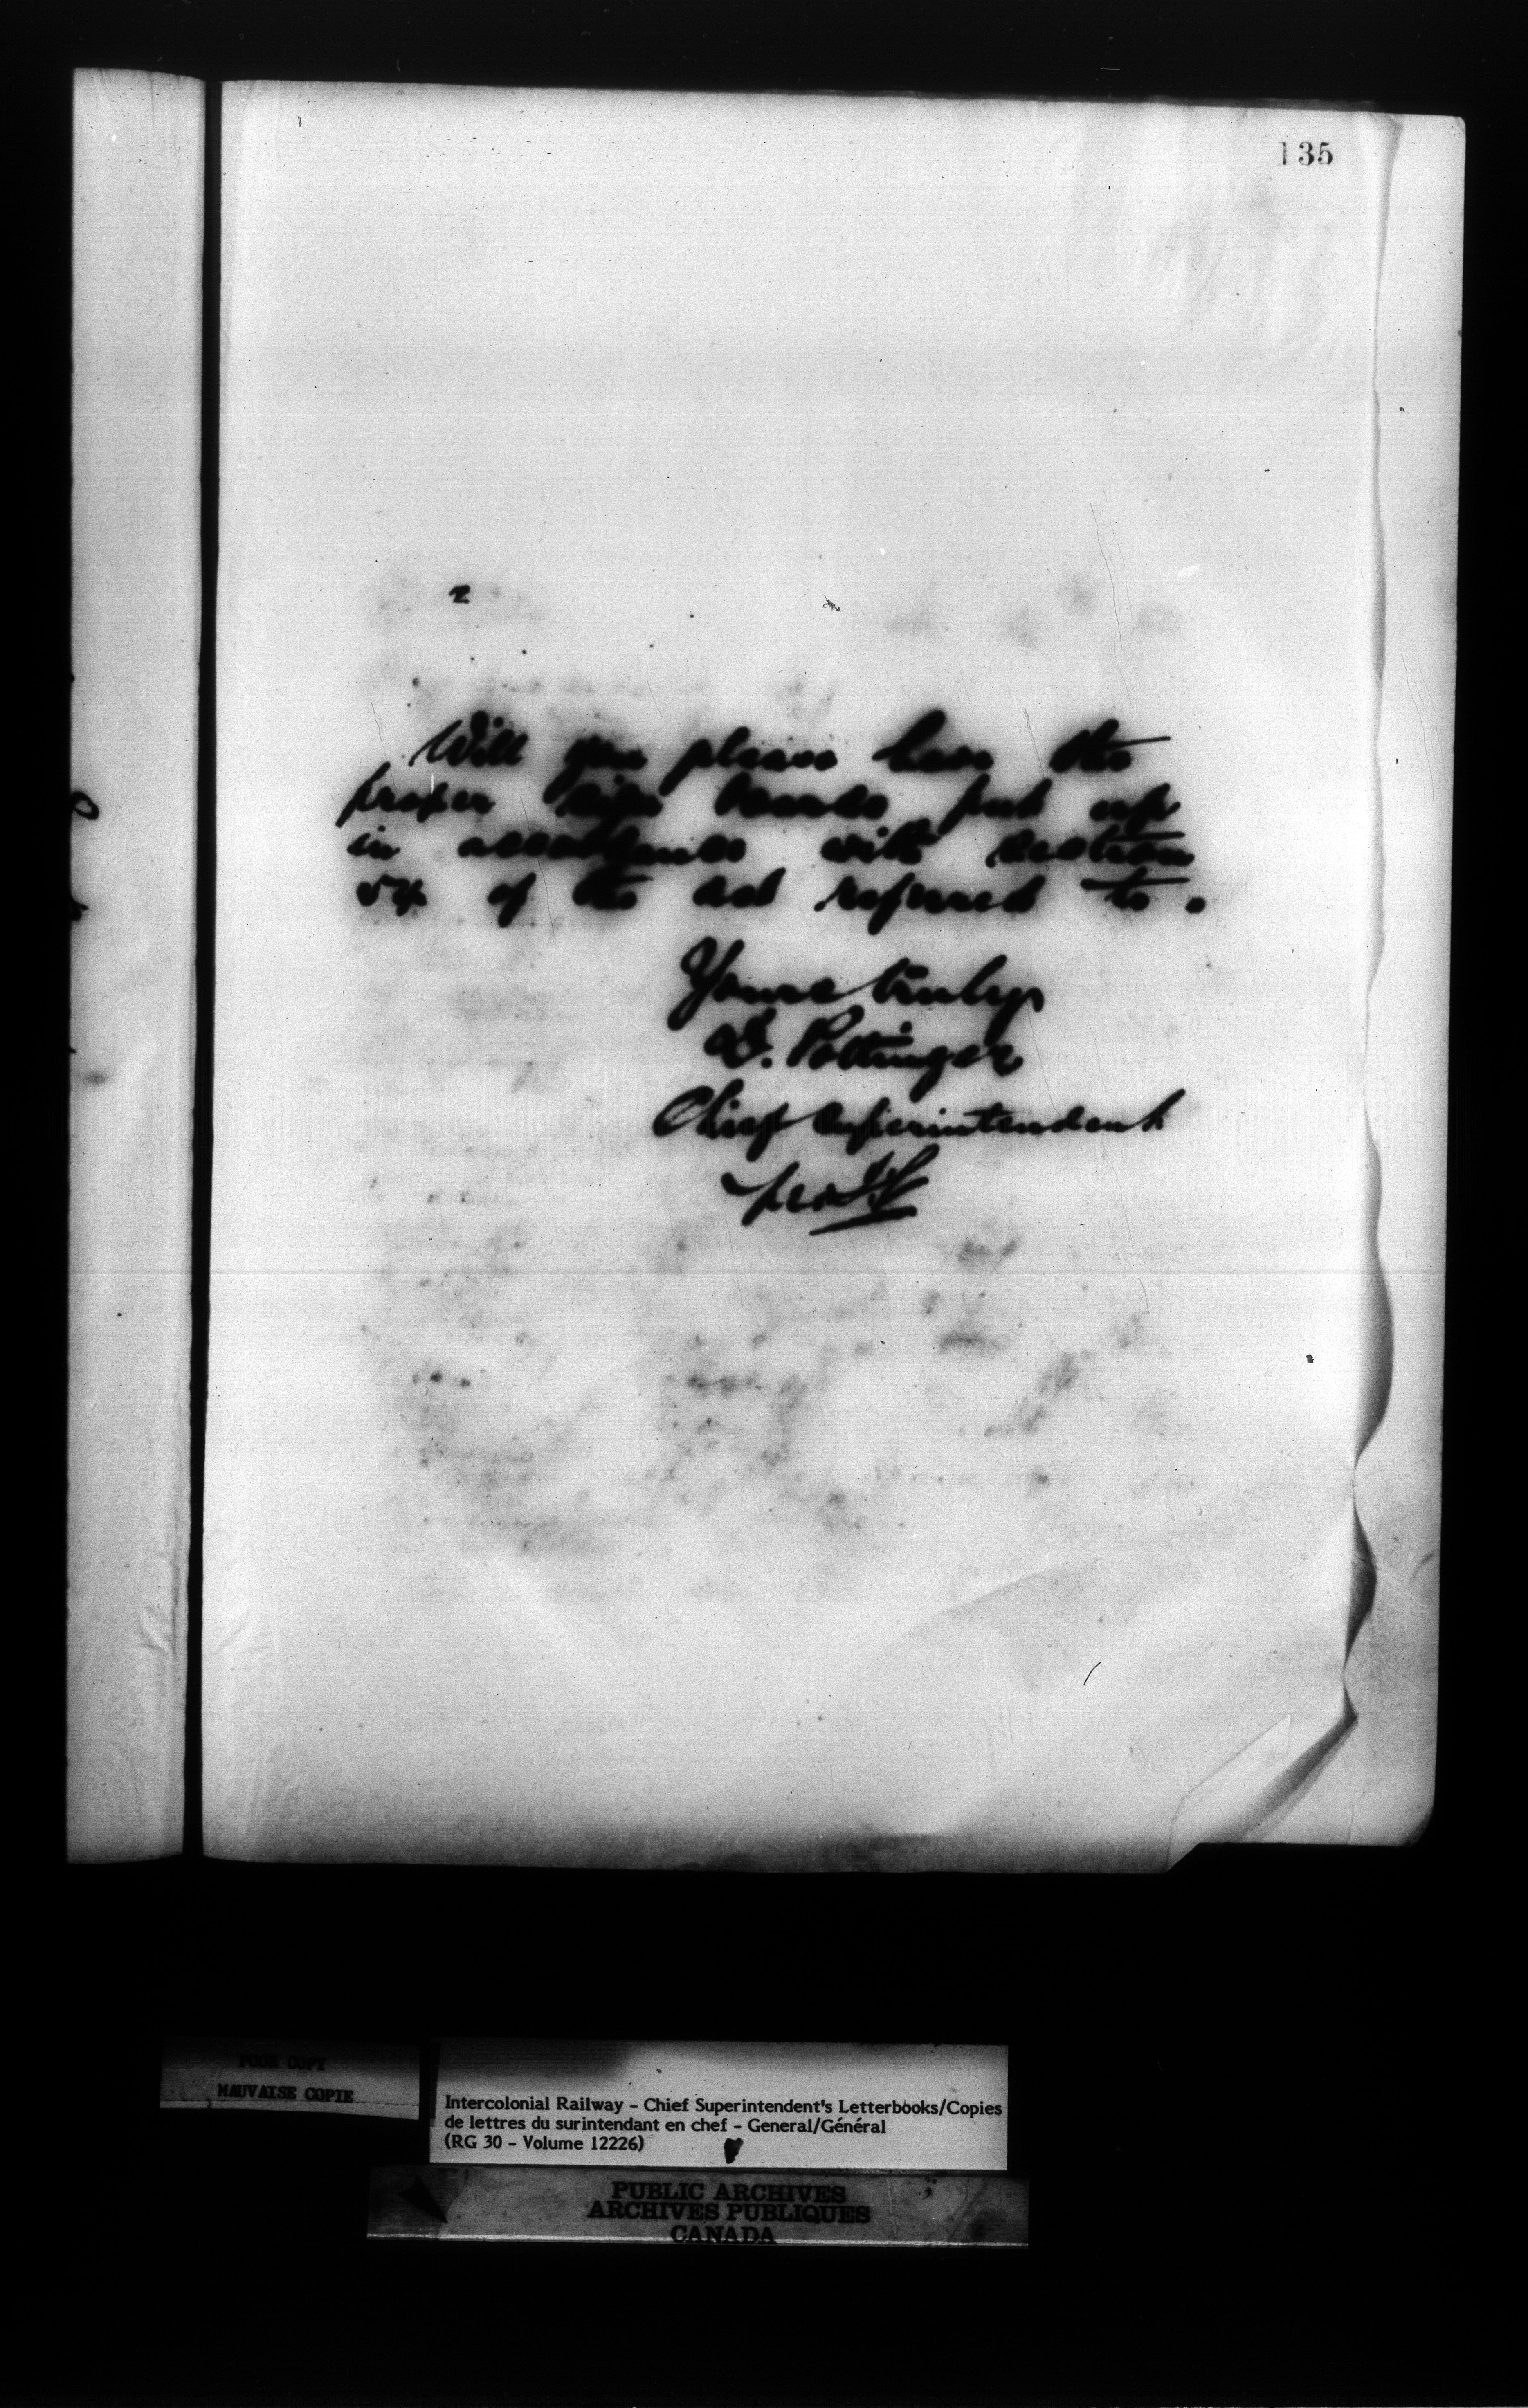 135
2
Will you please have the
proper sign boards put up
in accordance with section
54 of the act referred to.
Yours truly
D. Pottinger
Chief Superintendent
per
POOR COPY
MAUVAISE COPIE
Intercolonial Railway - Chief Superintendent's Letterbooks/Copies
de lettres du surintendant en chef - General/Général
(RG 30 - Volume 12226)
PUBLIC ARCHIVES
ARCHIVES PUBLIQUES
CANADA